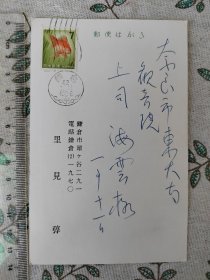 郵便はがき
7
奈良市東大寺
観音院
上司 海雲様
一月十二日
鎌倉市扇ヶ谷二九一
電話鎌倉(2)一九七〇
里見 弴